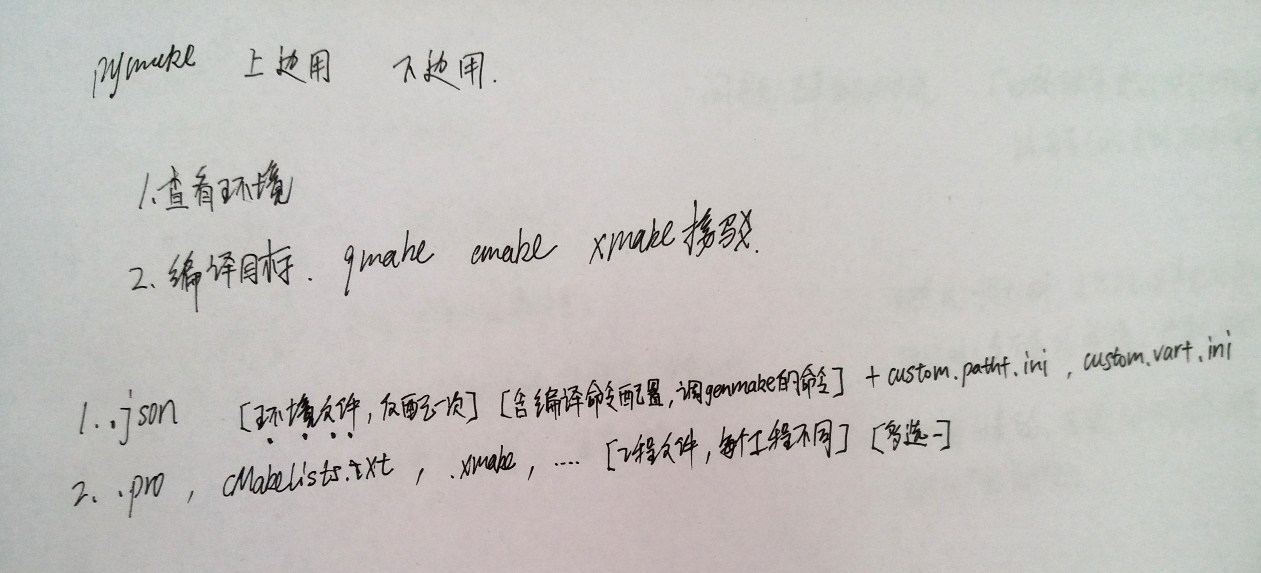 pymake 上边用 下边用.
1.查看环境
2.编译目标. qmake cmake xmake 接驳.
1. .json [环境文件,仅配一次] [含编译命令配置,调genmake的命令] + custom.path+.ini , custom.var+.ini
2. .pro , cMakeLists.txt , .xmake , .... [工程文件,每个工程不同] [多选一]